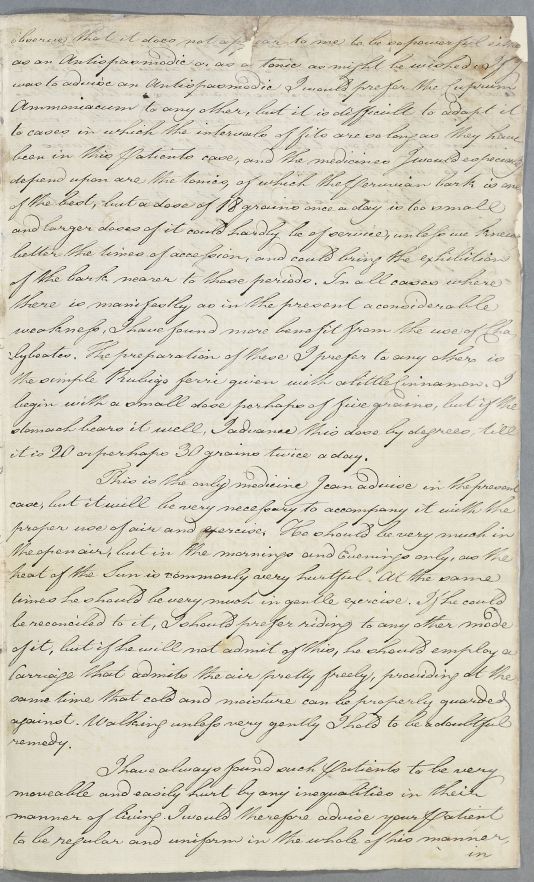 observe that it does not appear to me to be so powerful either
as an Antispasmodic or as a tonic as might be wished. If I
was to advise an Antispasmodic I would prefer the Cuprum
Ammoniacum to any other, but it is difficult to adapt it
to cases in which the intervals of fits are so long as they have
been in this Patients case, and the medicines I would especially
depend upon are the tonics, of which the Peruvian bark is one
of the best, but a dose of 18 grains once a day is too small
and larger doses of it could hardly be of service, unless we knew
better the times of accession, and could bring the exhibition
of the bark nearer to those periods. In all cases where
there is manifestly as in the present a considerable
weakness, I have found more benefit from the use of Cha
lybeates. The preparation of these I prefer to any other is
the simple Rubigo ferri given with a little Cinnamon. I
begin with a small dose perhaps of five grains, but if the
stomach bears it well, I advance this dose by degrees, till
it is 20 or perhaps 30 grains twice a day.
This is the only medicine I can advise in the present
case, but it will be very necessary to accompany it with the
proper use of air and exercise. He should be very much in
the open air, but in the mornings and Evenings only, as the
heat of the Sun is commonly very hurtful. At the same
times he should be very much in gentle exercise. If he could
be reconciled to it, I should prefer riding to any other mode
of it, but if he will not admit of this, he should employ a
Carriage that admits the air pretty freely, providing at the
same time that cold and moisture can be properly guarded
against. Walking unless very gently I hold to be a doubtful
remedy.
I have always found such Patients to be very
moveable and easily hurt by any inequalities in their
manner of living. I would therefore advise your Patient
to be regular and uniform in the whole of his manner,
in